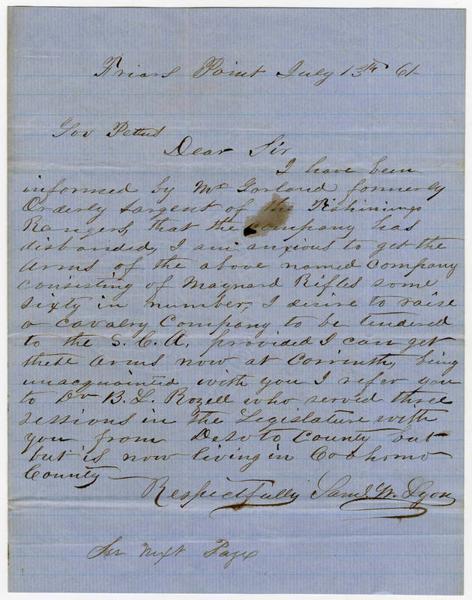 Friars Point July 13th 61
Gov Pettus
Dear Sir
I have been
informed by Mr Gorland formerly
Orderly Sargent of the Tishimingo
Rangers, that the company has
disbanded, I am anxious to get the
Arms of the above named Company
consisting of Maynard Rifles some
sixty in number, I desire to raise
a cavalry Company to be tendered
to the S. C. A. provided I can get
these Arms now at Corrinth, being
unacquainted with you I refer you
to Dr B. L. Rozell who served three
sessions in the Legislature with
you from DeSoto County but
but is now living in Cohomo
County
Respectfully Saml M. Lyon
See Next Page